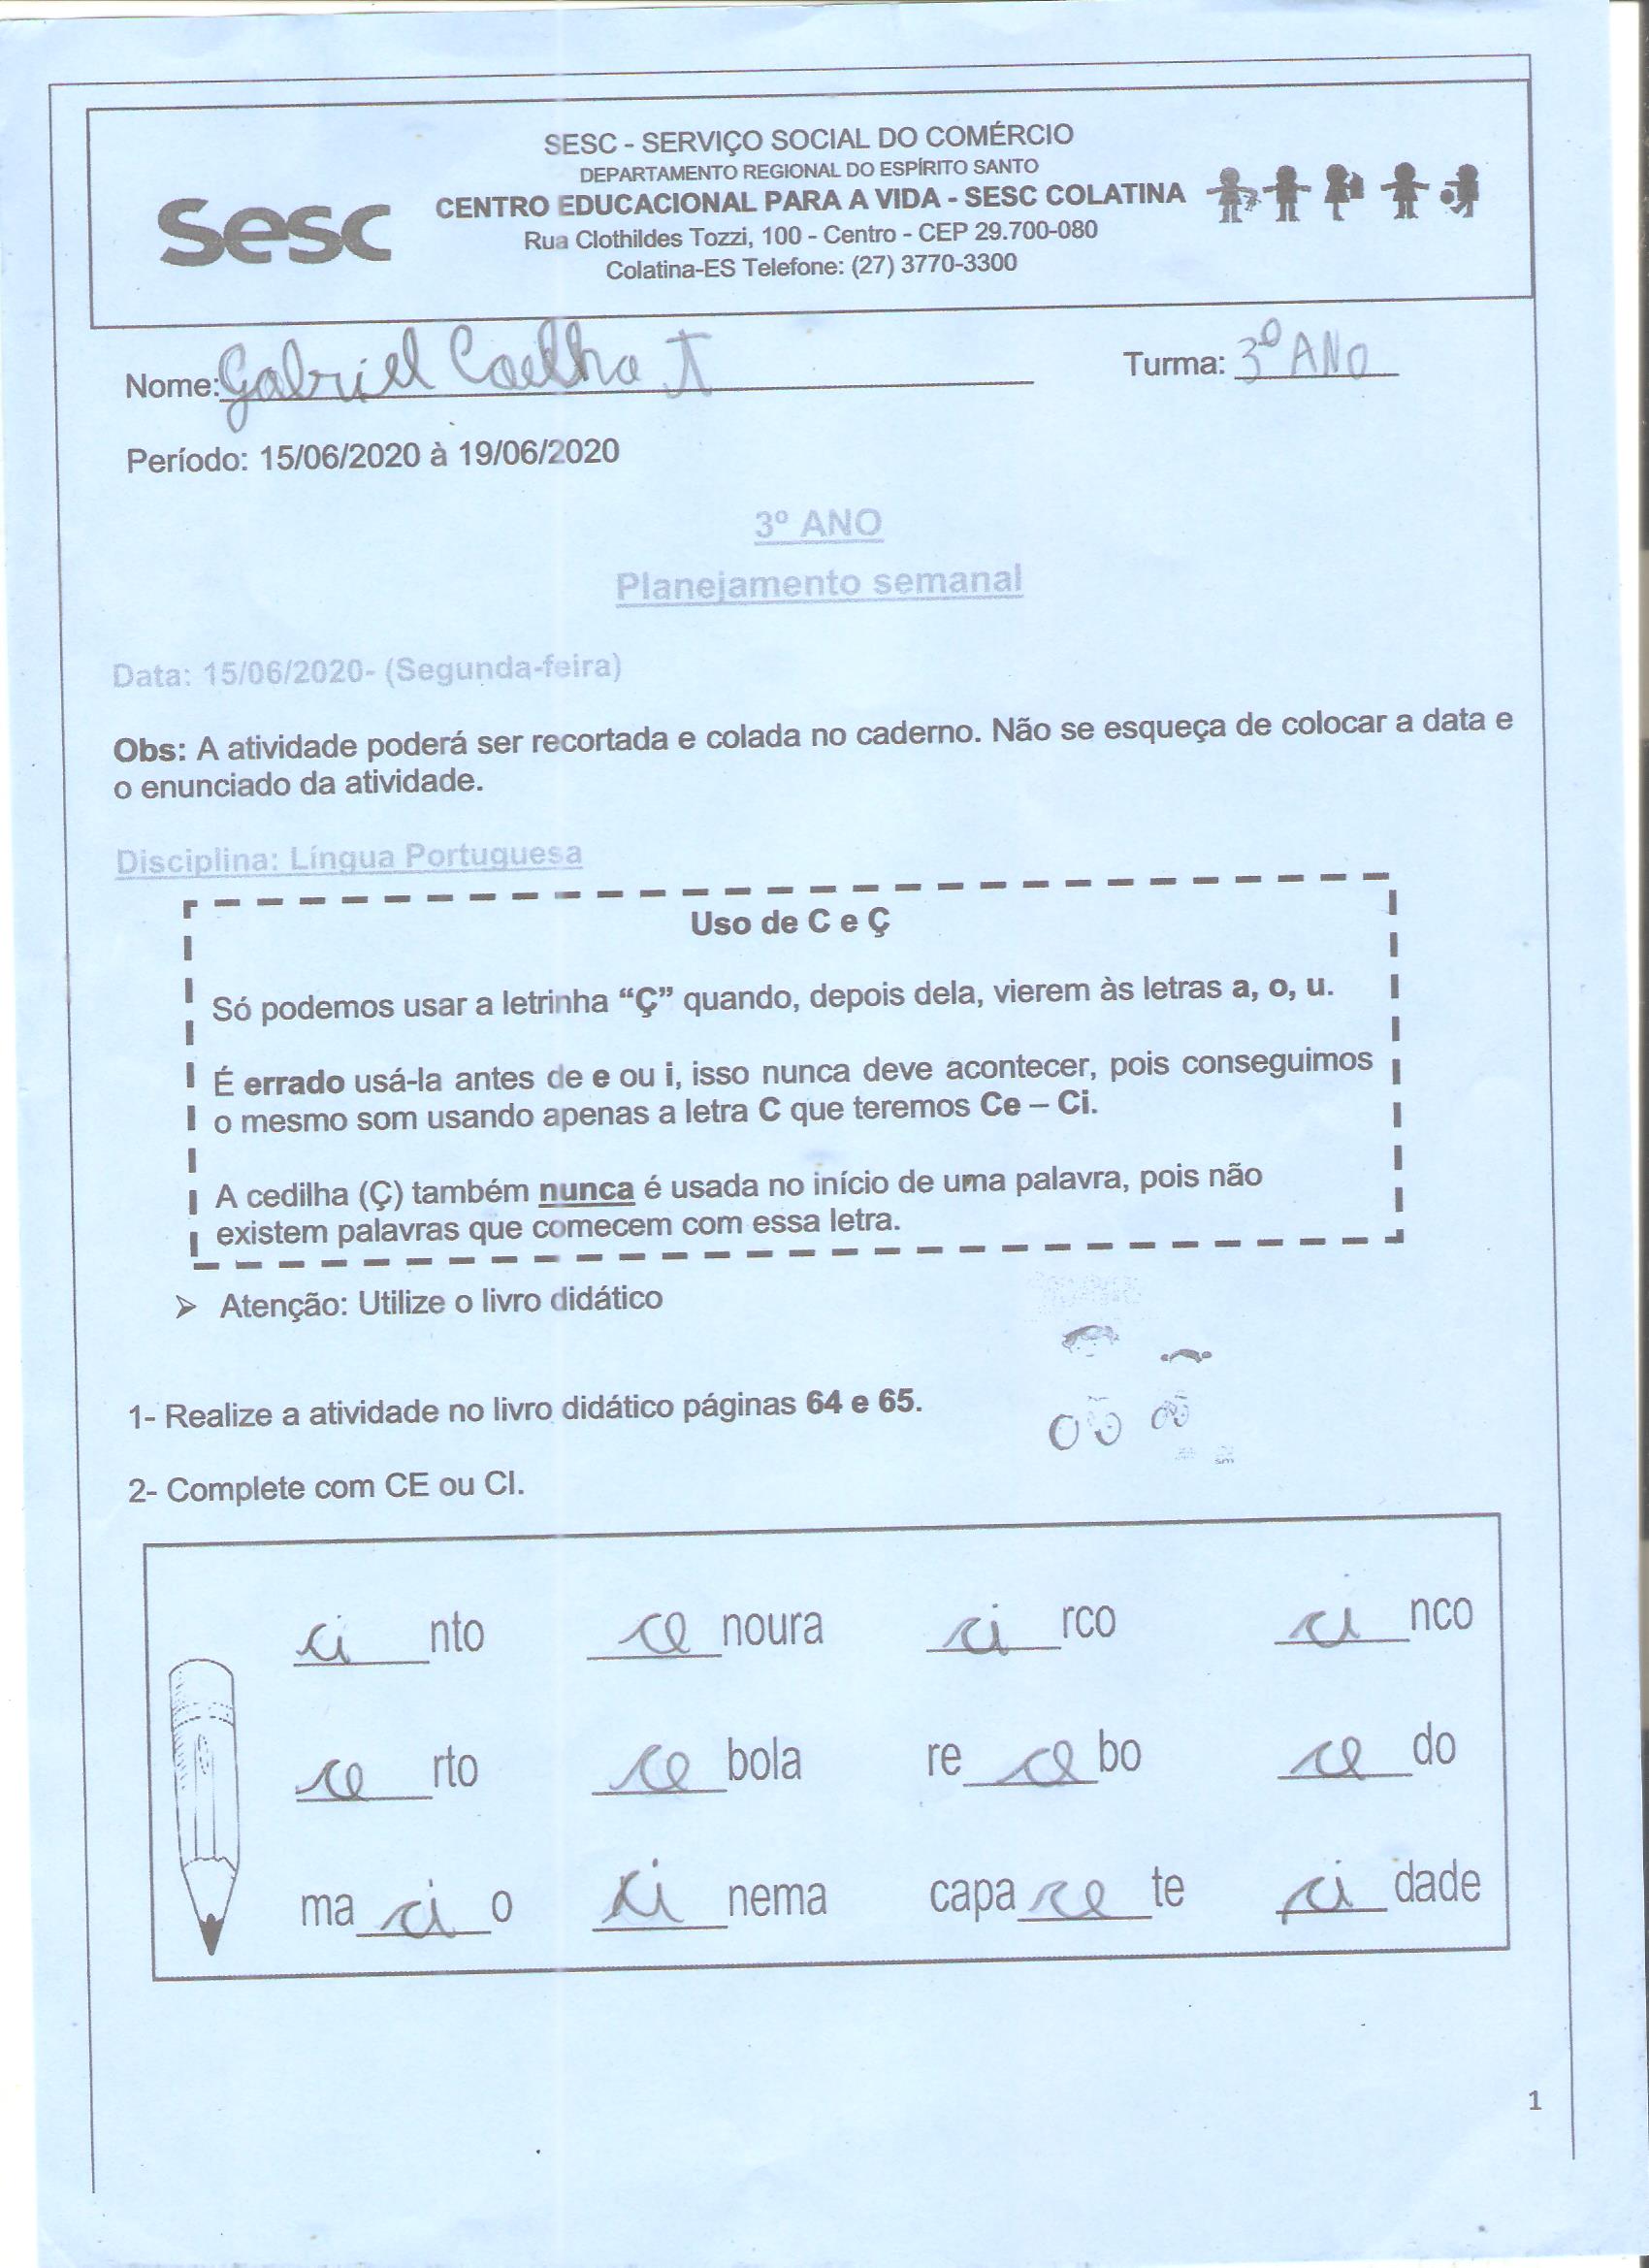 SESC - SERVIÇO SOCIAL DO COMÉRCIO
DEPARTAMENTO REGIONAL DO ESPÍRITO SANTO
Sesc CENTRO EDUCACIONAL PARA A VIDA - SESC COLATINA
Rua Clothildes Tozzi, 100 - Centro - CEP 29.700-080
Colatina-ES Telefone: (27) 3770-3300
Nome: Gabriel Coelho T Turma: 3º ANO
Período: 15/06/2020 à 19/06/2020
3º ANO
Planejamento semanal
Data: 15/06/2020- (Segunda-feira)
Obs: A atividade poderá ser recortada e colada no caderno. Não se esqueça de colocar a data e
o enunciado da atividade.
Disciplina: Língua Portuguesa
Uso de C e Ç
Só podemos usar a letrinha “Ç” quando, depois dela, vierem às letras a, o, u.
É errado usá-la antes de e ou i, isso nunca deve acontecer, pois conseguimos
o mesmo som usando apenas a letra C que teremos Ce – Ci.
A cedilha (Ç) também nunca é usada no início de uma palavra, pois não
existem palavras que comecem com essa letra.
➢ Atenção: Utilize o livro didático
1- Realize a atividade no livro didático páginas 64 e 65.
2- Complete com CE ou CI.
ci nto ce noura ci rco ci nco
ce rto ce bola re ce bo ce do
ma ci o ci nema capa ce te ci dade
1